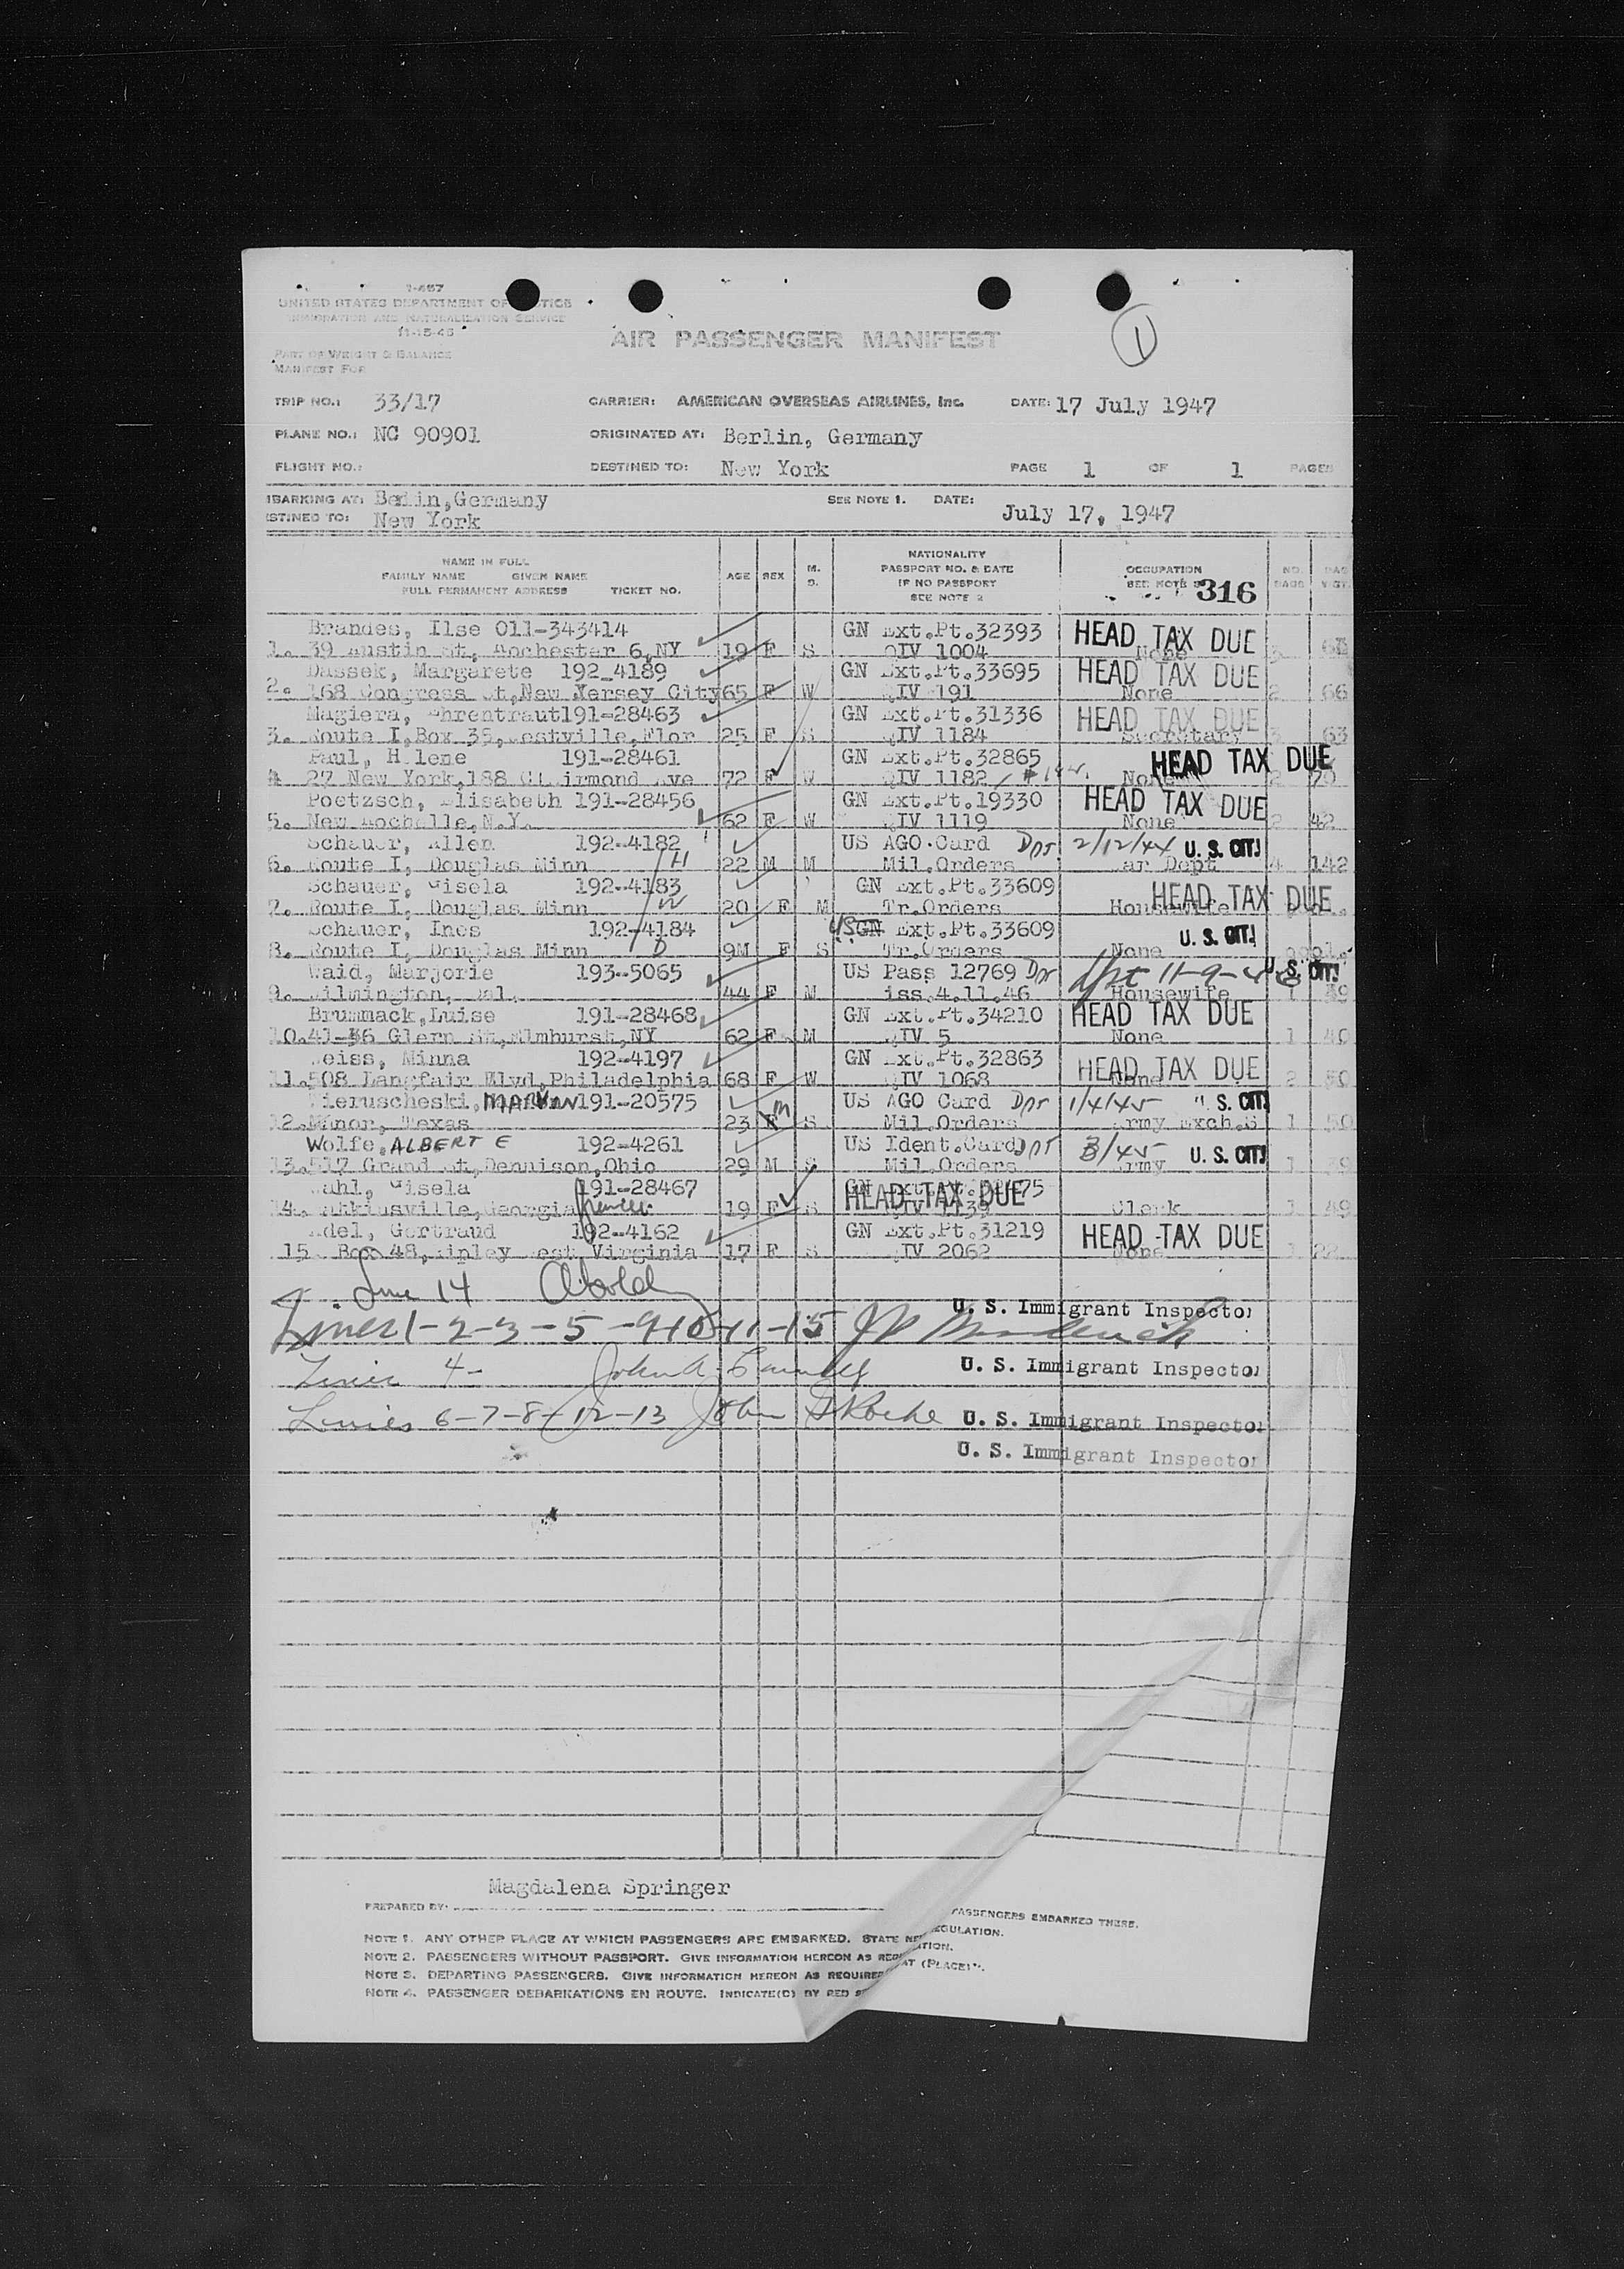 I-467
UNITED STATES DEPARTMENT OF JUSTICE
IMMIGRATION AND NATURALIZATION SERVICE
11-15-45
PART OF WEIGHT & BALANCE
MANIFEST FOR
AIR PASSENGER MANIFEST
1
TRIP NO.: 33/17 CARRIER: AMERICAN OVERSEAS AIRLINES, Inc. DATE: 17 July 1947
PLANE NO.: NC 90901 ORIGINATED AT: Berlin, Germany
FLIGHT NO.: DESTINED TO: New York PAGE 1 OF 1 PAGES
MBARKING AT: Berlin,Germany SEE NOTE 1. DATE: July 17, 1947
STINED TO: New York
NAME IN FULL
FAMILY NAME GIVEN NAME
FULL PERMANENT ADDRESS TICKET NO.
AGE SEX M. S.
NATIONALITY
PASSPORT NO. & DATE
IF NO PASSPORT
SEE NOTE 2
OCCUPATION
SEE NOTE 3 316
NO. BAGS
Brandes, Ilse 011-343414 GN Ext.Pt.32393 HEAD TAX DUE
1. 39 Austin St, Rochester 6,NY 19 F S QIV 1004 None 3
Dassek, Margarete 192-4189 GN Ext.Pt.33695 HEAD TAX DUE
2. 168 Congress St,New Yersey City 65 F W QIV 191 None 2 66
Magiera, Ehrentraut 191-28463 GN Ext.Pt.31336 HEAD TAX DUE
3. Route I,Box 35,Westville,Flor 25 F S QIV 1184 Secretary 3 63
Paul, Helene 191-28461 GN Ext.Pt.32865 HEAD TAX DUE
4 27 New York,188 Clairmond Ave 72 F W QIV 1182 None 2 70
Poetzsch, Elisabeth 191-28456 GN Ext.Pt.19330 HEAD TAX DUE
5. New Rochelle,N.Y. 62 F W QIV 1119 None 2 42
Schauer, Allen 192-4182 US AGO Card Dpt 2/12/44 U. S. CIT.
6. Route I, Douglas Minn H 22 M M Mil.Orders War Dept 4 142
Schauer, Gisela 192-4183 GN Ext.Pt.33609 HEAD TAX DUE
7. Route I, Douglas Minn W 20 F M Tr.Orders Housewife
Schauer, Ines 192-4184 US GN Ext.Pt.33609 U. S. CIT.
8. Route I, Douglas Minn D 9M F S Tr.Orders None
Waid, Marjorie 193-5065 US Pass 12769 Dpt U. S. CIT.
9. Wilmington, Dal. 44 F M iss.4.11.46 Housewife 1 39
Brummack,Luise 191-28468 GN Ext.Pt.34210 HEAD TAX DUE
10. 41-56 Glern St,Elmhurst,NY 62 F M QIV 5 None 1 40
Weiss, Minna 192-4197 GN Ext.Pt.32863 HEAD TAX DUE
11. 508 Langfair Blvd,Philadelphia 68 F W QIV 1068 None 2 50
Wieruscheski, MARVIN 191-20575 US AGO Card Dpt 1/4/45 U. S. CIT.
12. Minor, Texas 23 F M S Mil.Orders Army Exch.S 1 50
Wolfe, ALBERT E 192-4261 US Ident.Card Dpt 3/45 U. S. CIT.
13. 517 Grand St,Dennison,Ohio 29 M S Mil.Orders Army 1 39
Wahl, Gisela 191-28467 HEAD TAX DUE
14. Georgia 19 F S QIV 1139 Clerk 1 49
Gertraud 192-4162 GN Ext.Pt.31219 HEAD TAX DUE
15 Box 48,Ripley West Virginia 17 F S QIV 2062 None 1
Line 14 U. S. Immigrant Inspector
Lines 1-2-3-5-9-10-11-15
Line 4- John A. U. S. Immigrant Inspector
Lines 6-7-8-12-13 John G Roche U. S. Immigrant Inspector
U. S. Immigrant Inspector
Magdalena Springer
PREPARED BY:
PASSENGERS EMBARKED THERE.
NOTE 1. ANY OTHER PLACE AT WHICH PASSENGERS ARE EMBARKED. STATE
EGULATION.
NOTE 2. PASSENGERS WITHOUT PASSPORT. GIVE INFORMATION HEREON AS
ATION.
NOTE 3. DEPARTING PASSENGERS. GIVE INFORMATION HEREON AS REQUIRED
AT (PLACE)".
NOTE 4. PASSENGER DEBARKATIONS EN ROUTE. INDICATE(D) BY RED